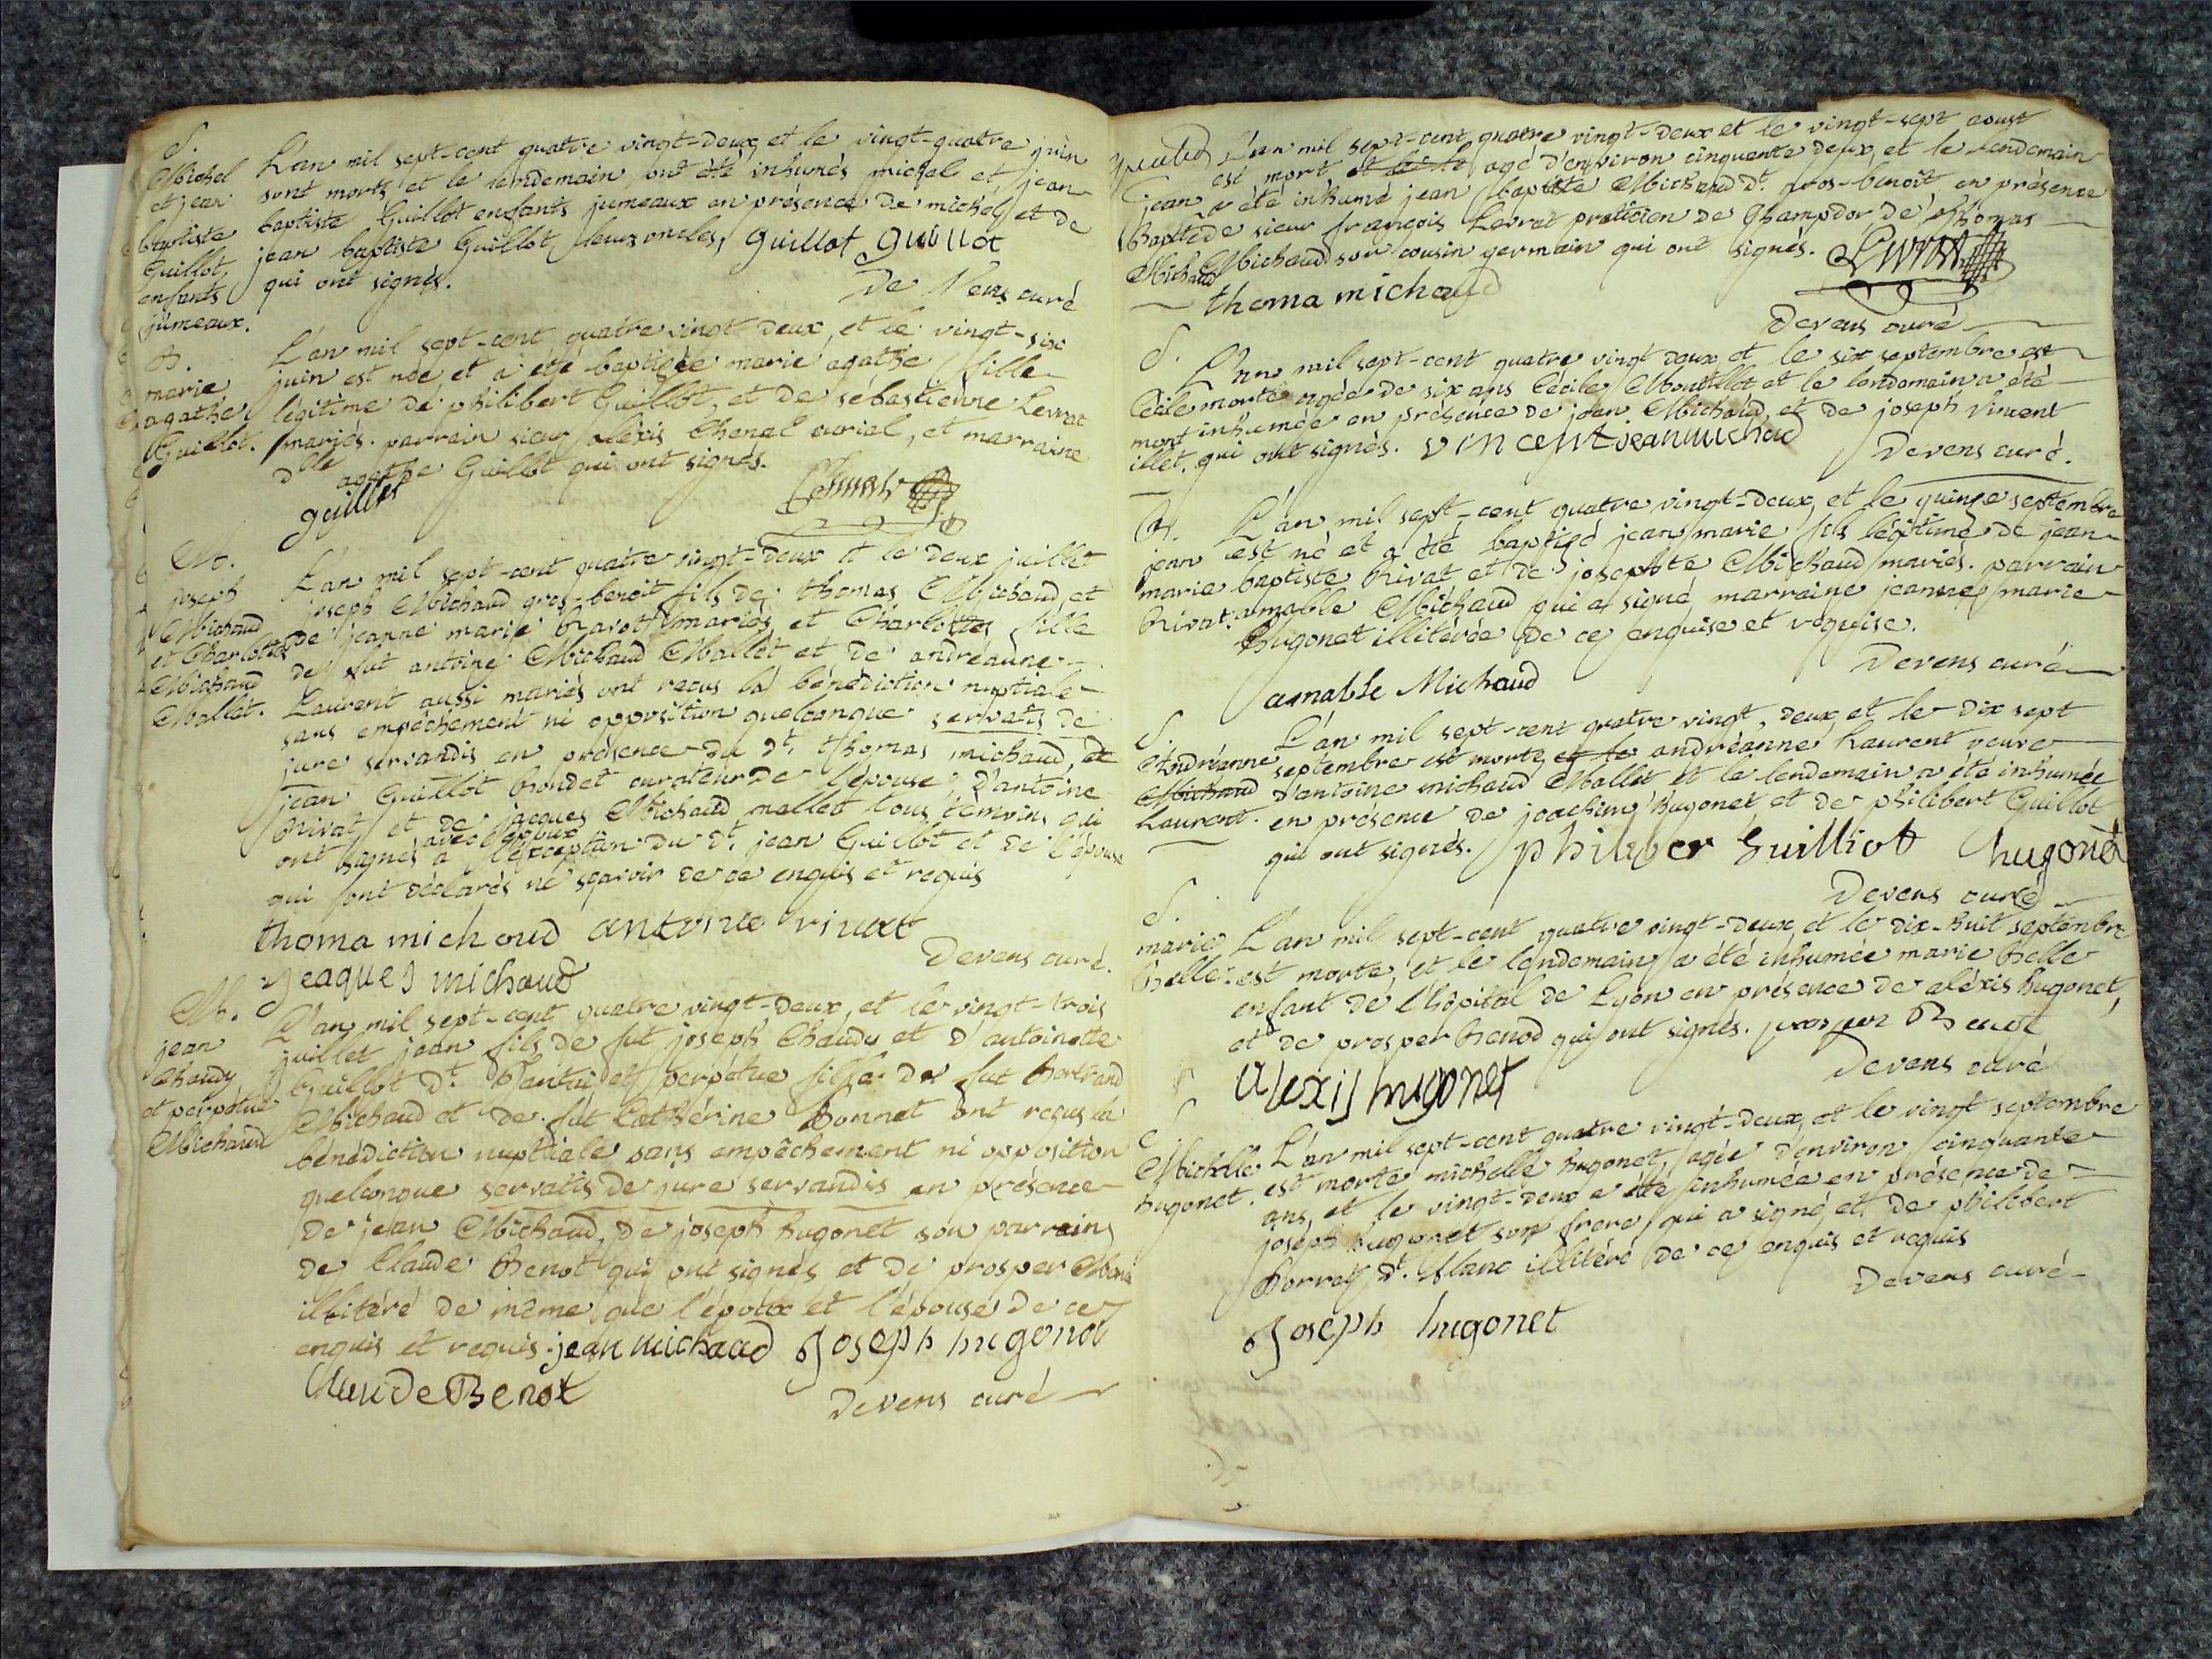 S.
Michel
et jean
baptiste
Guillot
enfants
jumeaux.
L'an mil sept-cent quatre vingt-deux et le vingt-quatre juin
sont morts et le lendemain ont été inhumés michel et jean
baptiste Guillot enfants jumeaux en présence de michel et de
jean baptiste Guillot leurs oncles, guillot guillot
qui ont signés.
De Vens curé
B.
marie
agathe
Guillot.
L'an mil sept-cent quatre vingt deux, et le vingt-six
juin est née et a été baptisée marie agathe fille
légitime de philibert Guillot, et de sébastienne Levrat
mariés. parrain sieur aléxis Chenal curial, et marraine
dlle agathe Guillot qui ont signés.
guillot
M.
joseph
Michaud
et Charlotte
Michaud
Mallet.
L'an mil sept-cent quatre vingt-deux et le deux juillet
joseph Michaud gros-benoit fils de thomas Michaud, et
de jeanne marie Ravot mariés et Charlottes fille
de fut antoine Michaud Mallet et de andréanne
Laurent aussi mariés ont reçus la bénédiction nuptiale
sans empêchement ni opposition quelconque servatis de
jure servandis en présence du dt. thomas michaud, de
jean Guillot bondet curateur de l'épouse, d'antoine
Rivat et de jacques Michaud mallet tous témoins qui
ont signés avec l'epoux a l'exception du dt. jean Guillot et de l'épouse
qui ont déclarés ne sçavoir de ce enquis et requis
thoma michoud antoine rivat
Devens curé.
Jeaques michaud
M.
jean
Chaudy
et perpétue
Michaud
L'an mil sept-cent quatre vingt-deux, et le vingt-trois
juillet jean fils de fut joseph Chaudy et d'antoinette
Guillot dt. et perpétue fille de fut bertrand
Michaud et de fut Cathérine Bonnet ont reçus la
bénédiction nuptiale sans empêchement ni opposition
quelconque servatis de jure servandis en présence
de jean Michaud, de joseph hugonet son parrain
de Claude Benot qui ont signés et de prosper
illitéré de même que l'époux et l'épouse de ce
enquis et requis. jean michaad Joseph hugonet
Claude Benot
Devens curé
jean
Baptiste
Michaud
L'an mil sept-cent quatre vingt-deux et le vingt-sept aoust
est mort et le le agé d'environ cinquante deux, et le lendemain
a été inhumé jean baptiste Michaud dt. gros-benoît en présence
de sieur françois Levrat praticien de Champdor, de thomas
Michaud son cousin germain qui ont signés. Levrat
thoma michaud
Devens curé
S.
Cécile
mont
illet.
L'an mil sept-cent quatre vingt deux et le six septembre est
morte agée de six ans Cécile Montillet et le lendemain a été
inhumée en présence de jean Michaud, et de joseph vincent
qui ont signés. vincent jean michaud
Devens curé.
B.
jean
marie
Rivat.
L'an mil sept-cent quatre vingt-deux, et le quinze septembre
est né et a été baptisé jean marie fils légitime de jean
baptiste Rivat et de josephte Michaud mariés. parrain
amable Michaud qui a signé, marraine jeanne marie
hugonet illitérée de ce enquise et requise.
Devens curé
amable Michaud
S.
Andréanne
Michaud
Laurent.
L'an mil sept-cent quatre vingt, deux, et le dix sept
septembre est morte et le andréanne Laurent veuve
d'antoine michaud Mallet et le lendemain a été inhumée
en présence de joachim hugonet et de philibert Guillot
qui ont signés. philiber Guilliot hugonet
Devens curé
S.
marie
belle.
L'an mil sept-cent quatre vingt-deux, et le dix-huit septembre
est morte, et le lendemain a été inhumée marie belle
enfant de l'hôpital de Lyon en présence de aléxis hugonet,
et de prosper benod qui ont signés. prosper Benot
Alexis hugonet
Devens curé
S.
Michelle
hugonet.
L'an mil sept-cent quatre vingt-deux, et le vingt septembre
est morte michelle hugonet, agée d'environ cinquante
ans, et le vingt-deux a été inhumée en présence de
joseph hugonet son frere, qui a signé et de philibert
Borrey dt. blanc illitéré de ce enquis et requis
Devens curé
Joseph hugonet